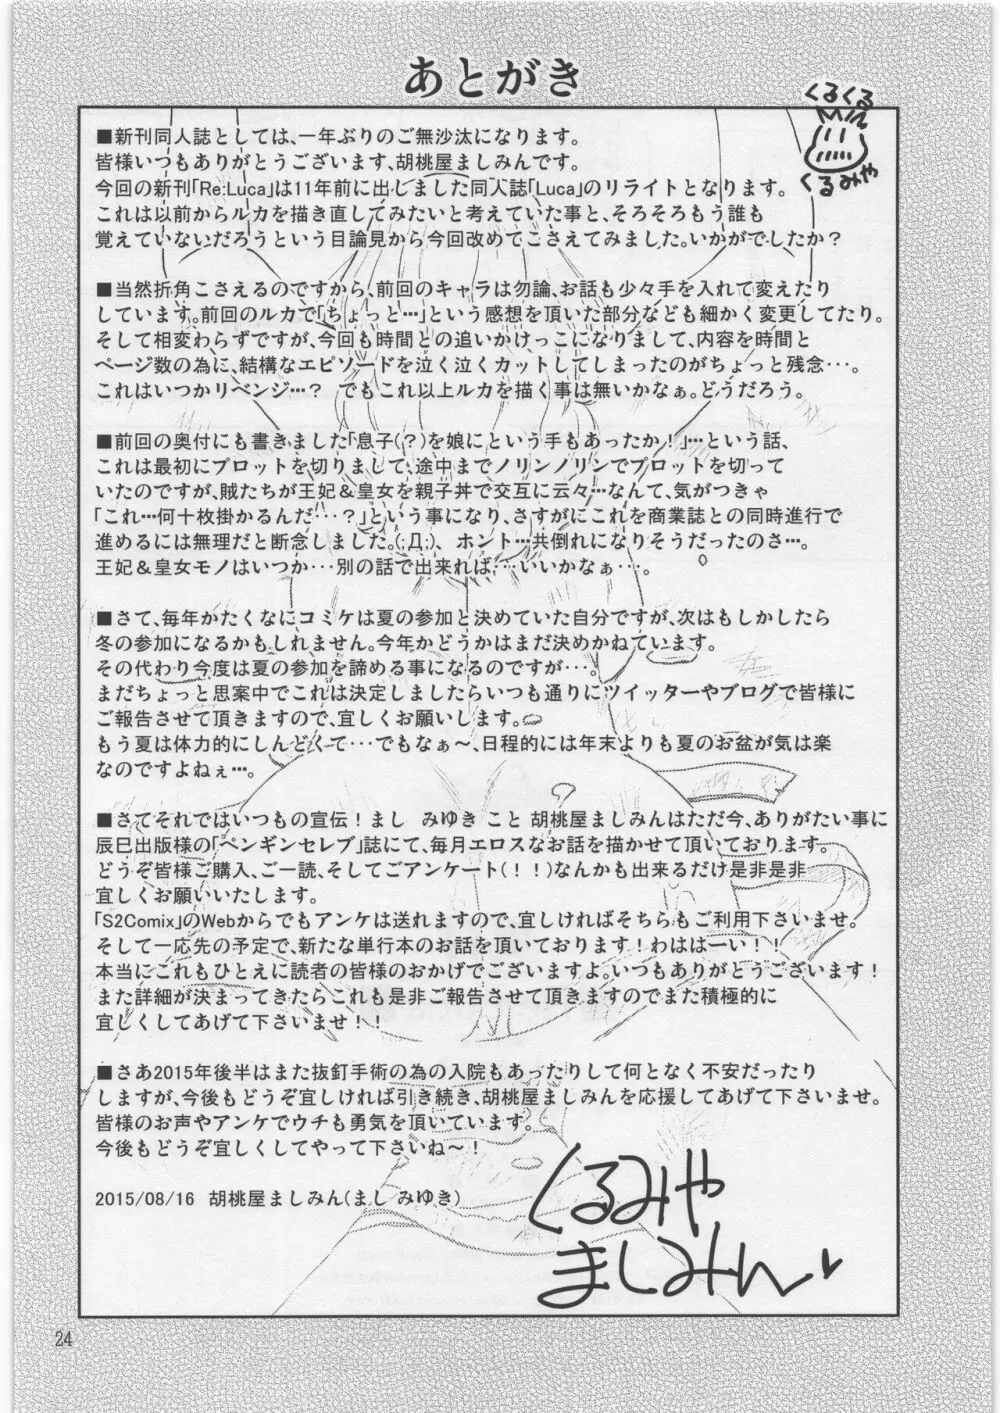 あとがき
くるくる
Min
くるみや
■新刊同人誌としては、一年ぶりのご無沙汰になります。
皆様いつもありがとうございます、胡桃屋ましみんです。
今回の新刊「Re:Luca」は11年前に出しました同人誌「Luca」のリライトとなります。
これは以前からルカを描き直してみたいと考えていた事と、そろそろもう誰も
覚えていないだろうという目論見から今回改めてこさえてみました。いかがでしたか？
■当然折角こさえるのですから、前回のキャラは勿論、お話も少々手を入れて変えたり
しています。前回のルカで「ちょっと…」という感想を頂いた部分なども細かく変更してたり。
そして相変わらずですが、今回も時間との追いかけっこになりまして、内容を時間と
ページ数の為に、結構なエピソードを泣く泣くカットしてしまったのがちょっと残念･･･。
これはいつかリベンジ…？　でもこれ以上ルカを描く事は無いかなぁ。どうだろう。
■前回の奥付にも書きました「息子(？)を娘にという手もあったか！」…という話、
これは最初にプロットを切りまして、途中までノリンノリンでプロットを切って
いたのですが、賊たちが王妃＆皇女を親子丼で交互に云々…なんて、気がつきゃ
「これ…何十枚掛かるんだ･･･？」という事になり、さすがにこれを商業誌との同時進行で
進めるには無理だと断念しました。(;Д;)、ホント…共倒れになりそうだったのさ…。
王妃＆皇女モノはいつか･･･別の話で出来れば･･･いいかなぁ･･･。
■さて、毎年かたくなにコミケは夏の参加と決めていた自分ですが、次はもしかしたら
冬の参加になるかもしれません。今年かどうかはまだ決めかねています。
その代わり今度は夏の参加を諦める事になるのですが･･･。
まだちょっと思案中でこれは決定しましたらいつも通りにツイッターやブログで皆様に
ご報告させて頂きますので、宜しくお願いします。
もう夏は体力的にしんどくて･･･でもなぁ～、日程的には年末よりも夏のお盆が気は楽
なのですよねぇ…。
■さてそれではいつもの宣伝！まし　みゆき こと 胡桃屋ましみんはただ今、ありがたい事に
辰巳出版様の「ペンギンセレブ」誌にて、毎月エロスなお話を描かせて頂いております。
どうぞ皆様ご購入、ご一読、そしてごアンケート(！！)なんかも出来るだけ是非是非
宜しくお願いいたします。
「S2Comix」のWebからでもアンケは送れますので、宜しければそちらもご利用下さいませ。
そして一応先の予定で、新たな単行本のお話を頂いております！わははーい！！
本当にこれもひとえに読者の皆様のおかげでございますよ。いつもありがとうございます！
また詳細が決まってきたらこれも是非ご報告させて頂きますのでまた積極的に
宜しくしてあげて下さいませ！！
■さあ2015年後半はまた抜釘手術の為の入院もあったりして何となく不安だったり
しますが、今後もどうぞ宜しければ引き続き、胡桃屋ましみんを応援してあげて下さいませ。
皆様のお声やアンケでウチも勇気を頂いています。
今後もどうぞ宜しくしてやって下さいね～！
2015/08/16　胡桃屋ましみん(まし みゆき)
くるみや
ましみん♥
24